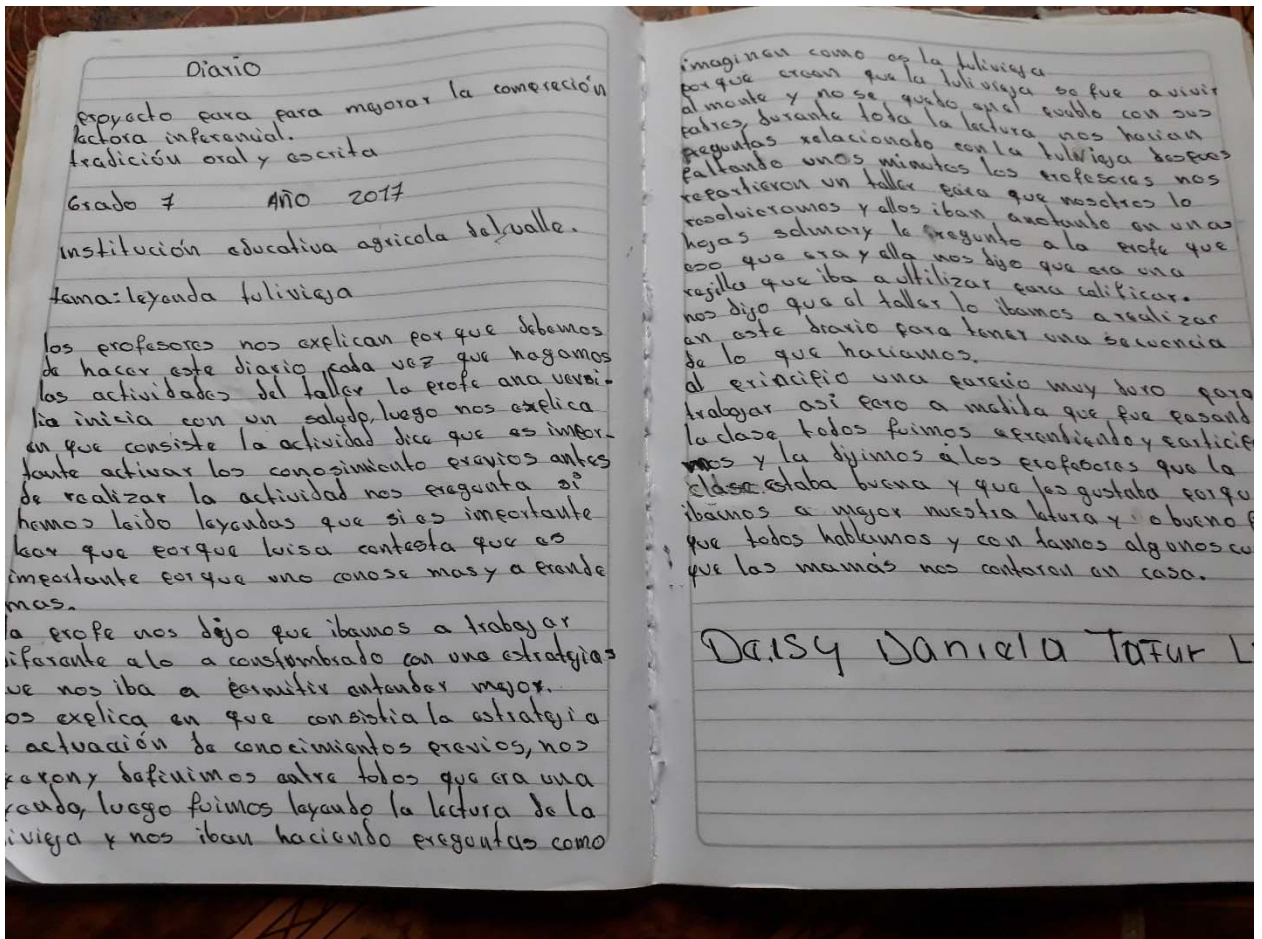 Diario
proyecto para para mejorar la compreción
lectora inferencial.
tradición oral y escrita
Grado 7 Año 2017
institución educativa agricola del valle.
tema: leyenda tulivieja
los profesores nos explican por que debemos
de hacer este diario cada vez que hagamos
las actividades del taller la profe ana versi-
lia inicia con un saludo, luego nos explica
en que consiste la actividad dice que es impor-
tante activar los conosimiento previos antes
de realizar la actividad nos pregunta si
hemos leido leyendas que si es importante
leer que porque luisa contesta que es
importante por que uno conose mas y a prende
mas.
a profe nos dijo que ibamos a trabajar
iferente alo a constumbrado con una estrategias
ue nos iba a permitir entender mejor.
os explica en que consistia la estrategia
actuación de conocimientos previos, nos
y definimos entre todos que era una
yenda, luego fuimos leyendo la lectura de la
ivieja y nos iban haciendo preguntas como
imaginen como es la tulivieja
por que creen que la tulivieja se fue a vivir
al monte y no se quedo en el pueblo con sus
padres, durante toda la lectura nos hacian
preguntas relacionado con la tulivieja despues
faltando unos minutos los profesores nos
repartieron un taller para que nosotros lo
resolvieramos y ellos iban anotando en unas
hojas selmary le pregunto a la profe que
eso que era y ella nos dijo que era una
rejilla que iba a ultilizar para calificar.
nos dijo que el taller lo ibamos a realizar
en este diario para tener una secuencia
de lo que haciamos.
al principio una parecio muy duro para
trabajar asi pero a medida que fue pasand
la clase todos fuimos aprendiendo y particip
mos y la dijimos a los profesores que la
clase estaba buena y que les gustaba porqu
ibamos a mejor nuestra letura y o bueno p
que todos hablamos y con tamos algunos cu
que las mamás nos contaron en casa.
Daisy Daniela Tafur L